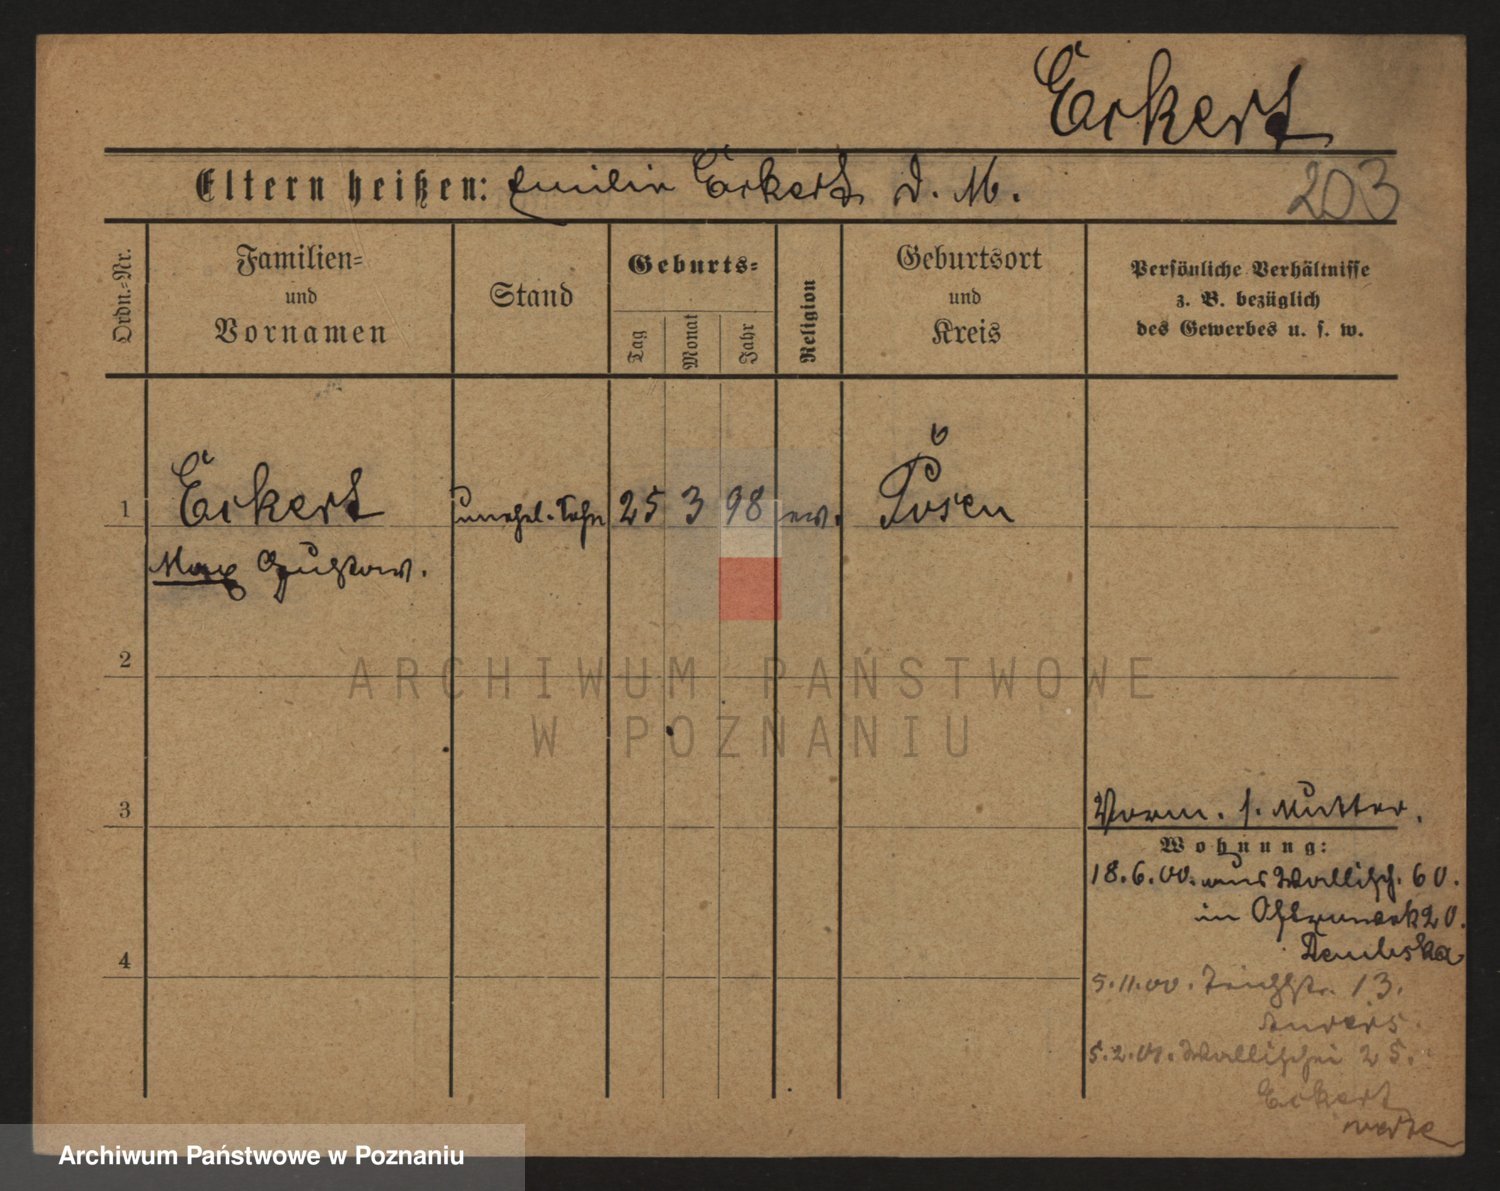 Eckert
Eltern heißen: Emilie Eckert d. M.
203
Ordn.-Nr.
Familien-
und
Vornamen
Stand
Geburts-
Tag
Monat
Jahr
Religion
Geburtsort
und
Kreis
Persönliche Verhältnisse
z. B. bezüglich
des Gewerbes u. s. w.
1 Eckert unehel. Sohn 25 3 98 ev. Posen
Max Gustav.
2
ARCHIWUM PAŃSTWOWE
W POZNANIU
3
Vorm. s. Mutter.
Wohnung:
18.6.00. aus Wallisch. 60.
in 20.
4
5.11.00. 13.
5.2.01. Wallischei 25.
Eckert
Archiwum Państwowe w Poznaniu